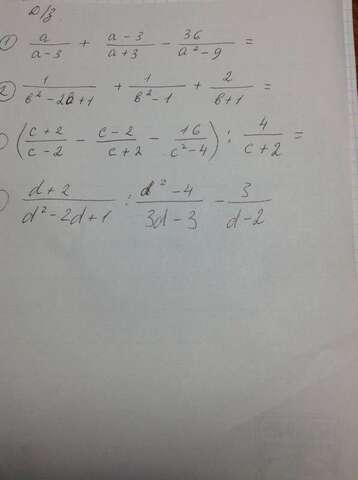 Д/з
1) a/(a-3) + (a-3)/(a+3) - 36/(a²-9) =
2) 1/(в²-2в+1) + 1/(в²-1) + 2/(в+1) =
) ((c+2)/(c-2) - (c-2)/(c+2) - 16/(c²-4)) : 4/(c+2) =
) (d+2)/(d²-2d+1) : (d²-4)/(3d-3) - 3/(d-2)